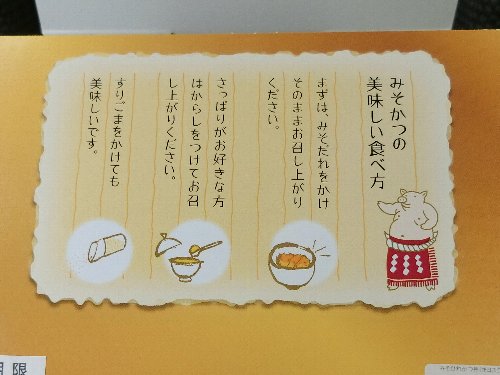 みそかつの
美味しい食べ方
まずは、みそだれをかけ
そのままお召し上がり
ください。
さっぱりがお好きな方
はからしをつけてお召
し上がりください。
すりごまをかけても
美味しいです。
期限